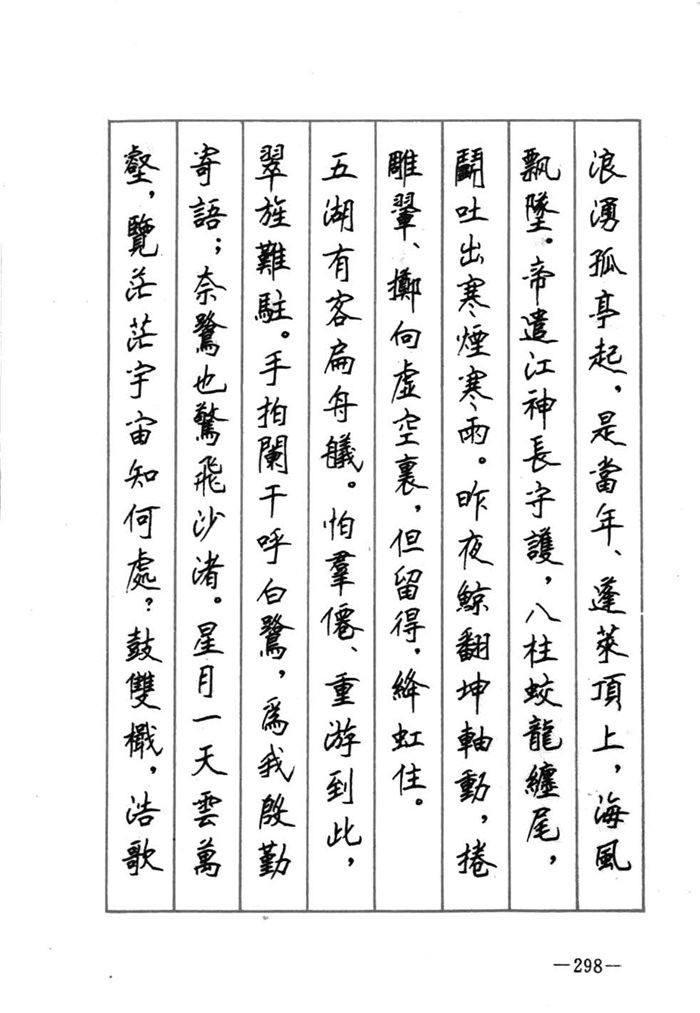 浪湧孤亭起，是當年、蓬萊頂上，海風
飄墜。帝遣江神長守護，八柱蛟龍纏尾，
鬭吐出寒煙寒雨。昨夜鯨翻坤軸動，捲
雕翬、擲向虛空裏，但留得，絳虹住。
五湖有客扁舟艤。怕羣僊、重游到此，
翠旌難駐。手拍闌干呼白鷺，爲我殷勤
寄語；奈鷺也驚飛沙渚。星月一天雲萬
壑，覽茫茫宇宙知何處？鼓雙檝，浩歌
—298—